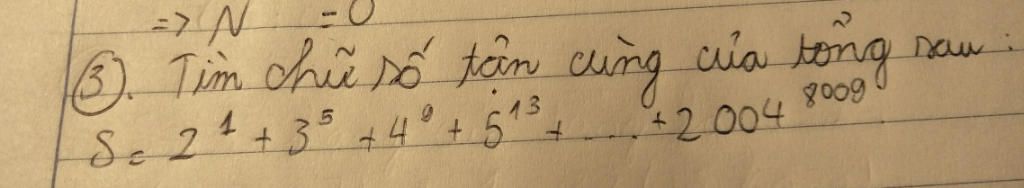 => N = 0
③. Tìm chữ số tận cùng của tổng sau :
S = 2^1 + 3^5 + 4^9 + 5^13 + .... + 2004^8009